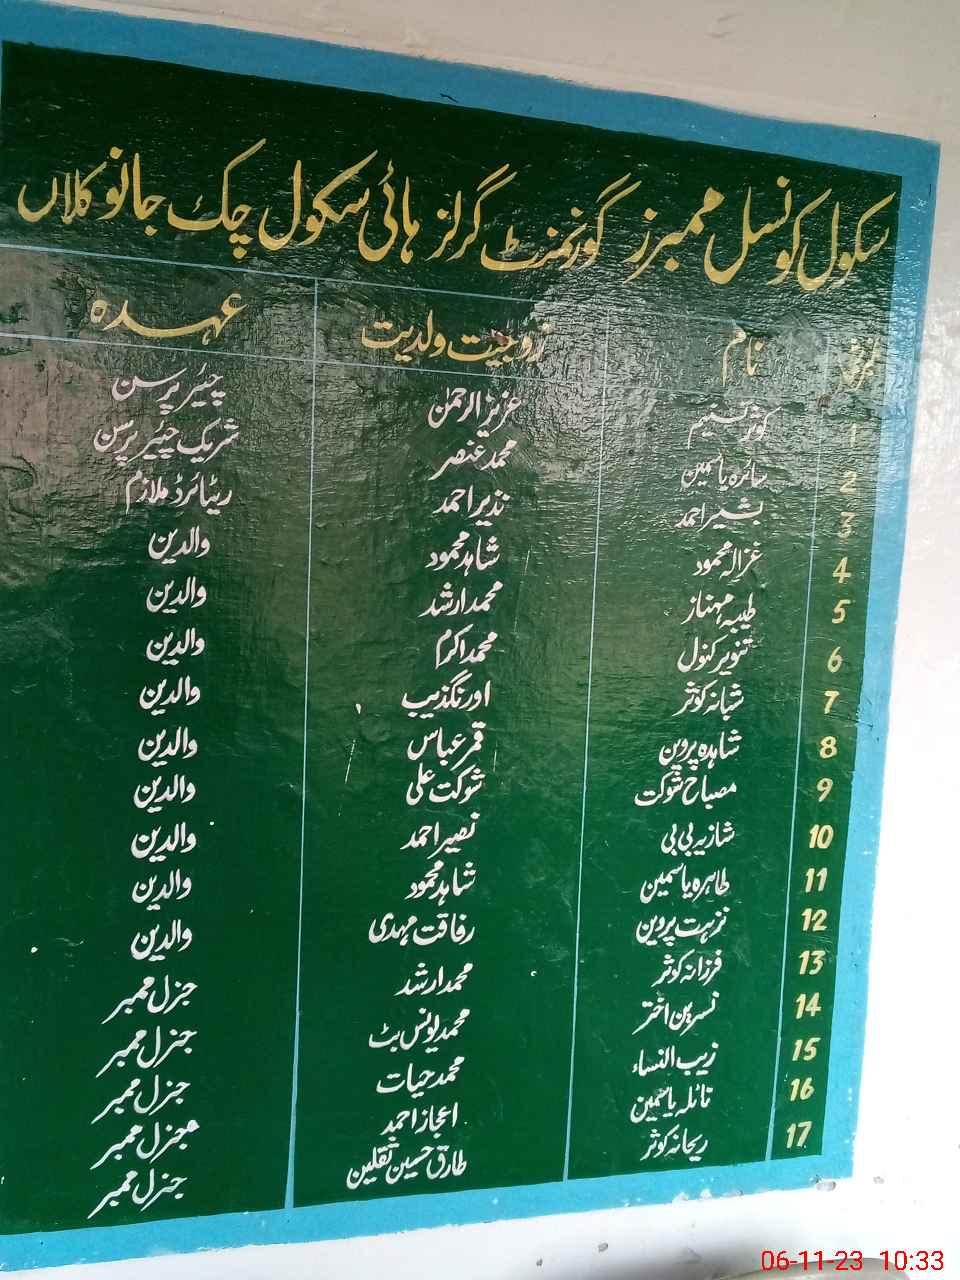 سکول کونسل ممبرز گورنمنٹ گرلز ہائی سکول چک جانو کلاں
نمبر شمار نام زوجیت ولدیت عہدہ
1 کوثر تسنیم عزیز الرحمٰن چیئر پرسن
2 سائرہ یاسمین محمد عنصر شریک چیئر پرسن
3 بشیر احمد نذیر احمد ریٹائرڈ ملازم
4 غزالہ محمود شاہد محمود والدین
5 طیبہ مہناز محمد ارشد والدین
6 تنویر کنول محمد اکرم والدین
7 شبانہ کوثر اورنگزیب والدین
8 شاہدہ پروین قمر عباس والدین
9 مصباح شوکت شوکت علی والدین
10 شازیہ بی بی نصیر احمد والدین
11 طاہرہ یاسمین شاہد محمود والدین
12 نزہت پروین رفاقت مہدی والدین
13 فرزانہ کوثر محمد ارشد جنرل ممبر
14 نسرین اختر محمد یونس بٹ جنرل ممبر
15 زیب النساء محمد حیات جنرل ممبر
16 نائلہ یاسمین اعجاز احمد جنرل ممبر
17 ریحانہ کوثر طارق حسین ثقلین جنرل ممبر
06-11-23 10:33